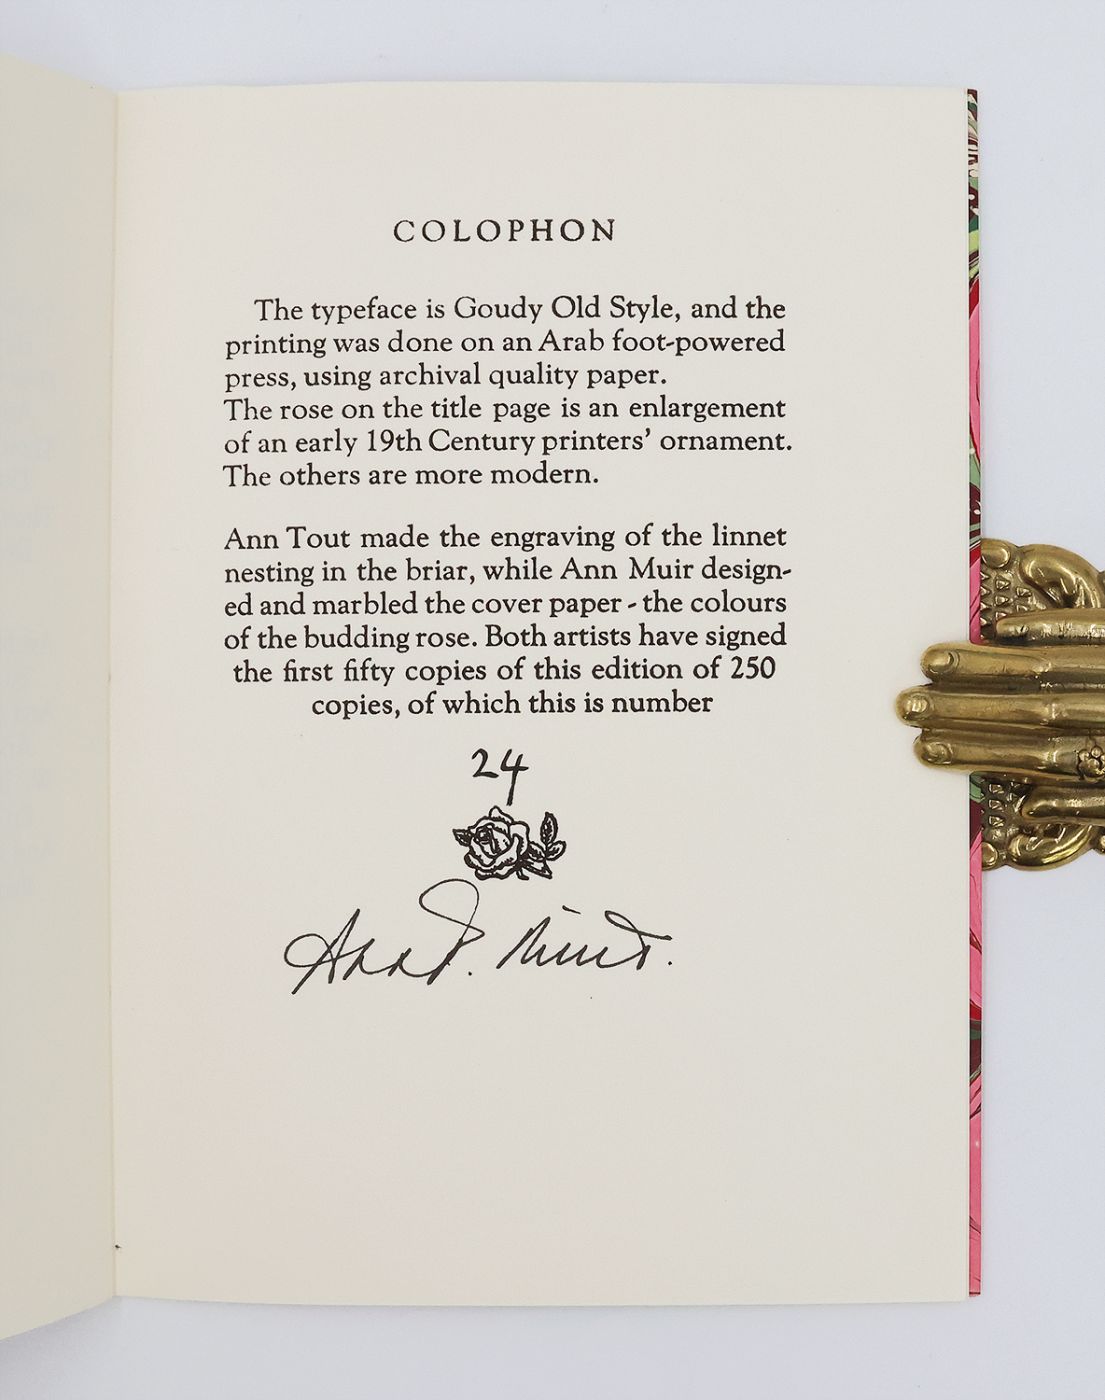 COLOPHON
The typeface is Goudy Old Style, and the
printing was done on an Arab foot-powered
press, using archival quality paper.
The rose on the title page is an enlargement
of an early 19th Century printers' ornament.
The others are more modern.
Ann Tout made the engraving of the linnet
nesting in the briar, while Ann Muir design-
ed and marbled the cover paper - the colours
of the budding rose. Both artists have signed
the first fifty copies of this edition of 250
copies, of which this is number
24